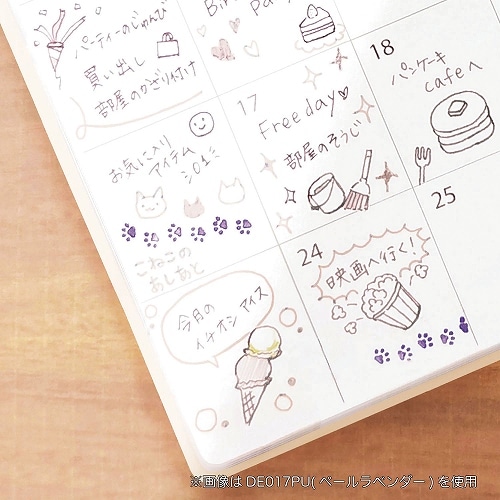 パーティーのじゅんび
買い出し
部屋のかざり付け
お気に入り
アイテム
こねこの
あしあと
今月の
イチオシ アイス
17
Free day
部屋のそうじ
18
パンケーキ
cafeへ
24
映画へ行く!
25
※画像は DE017PU( ペールラベンダー ) を使用